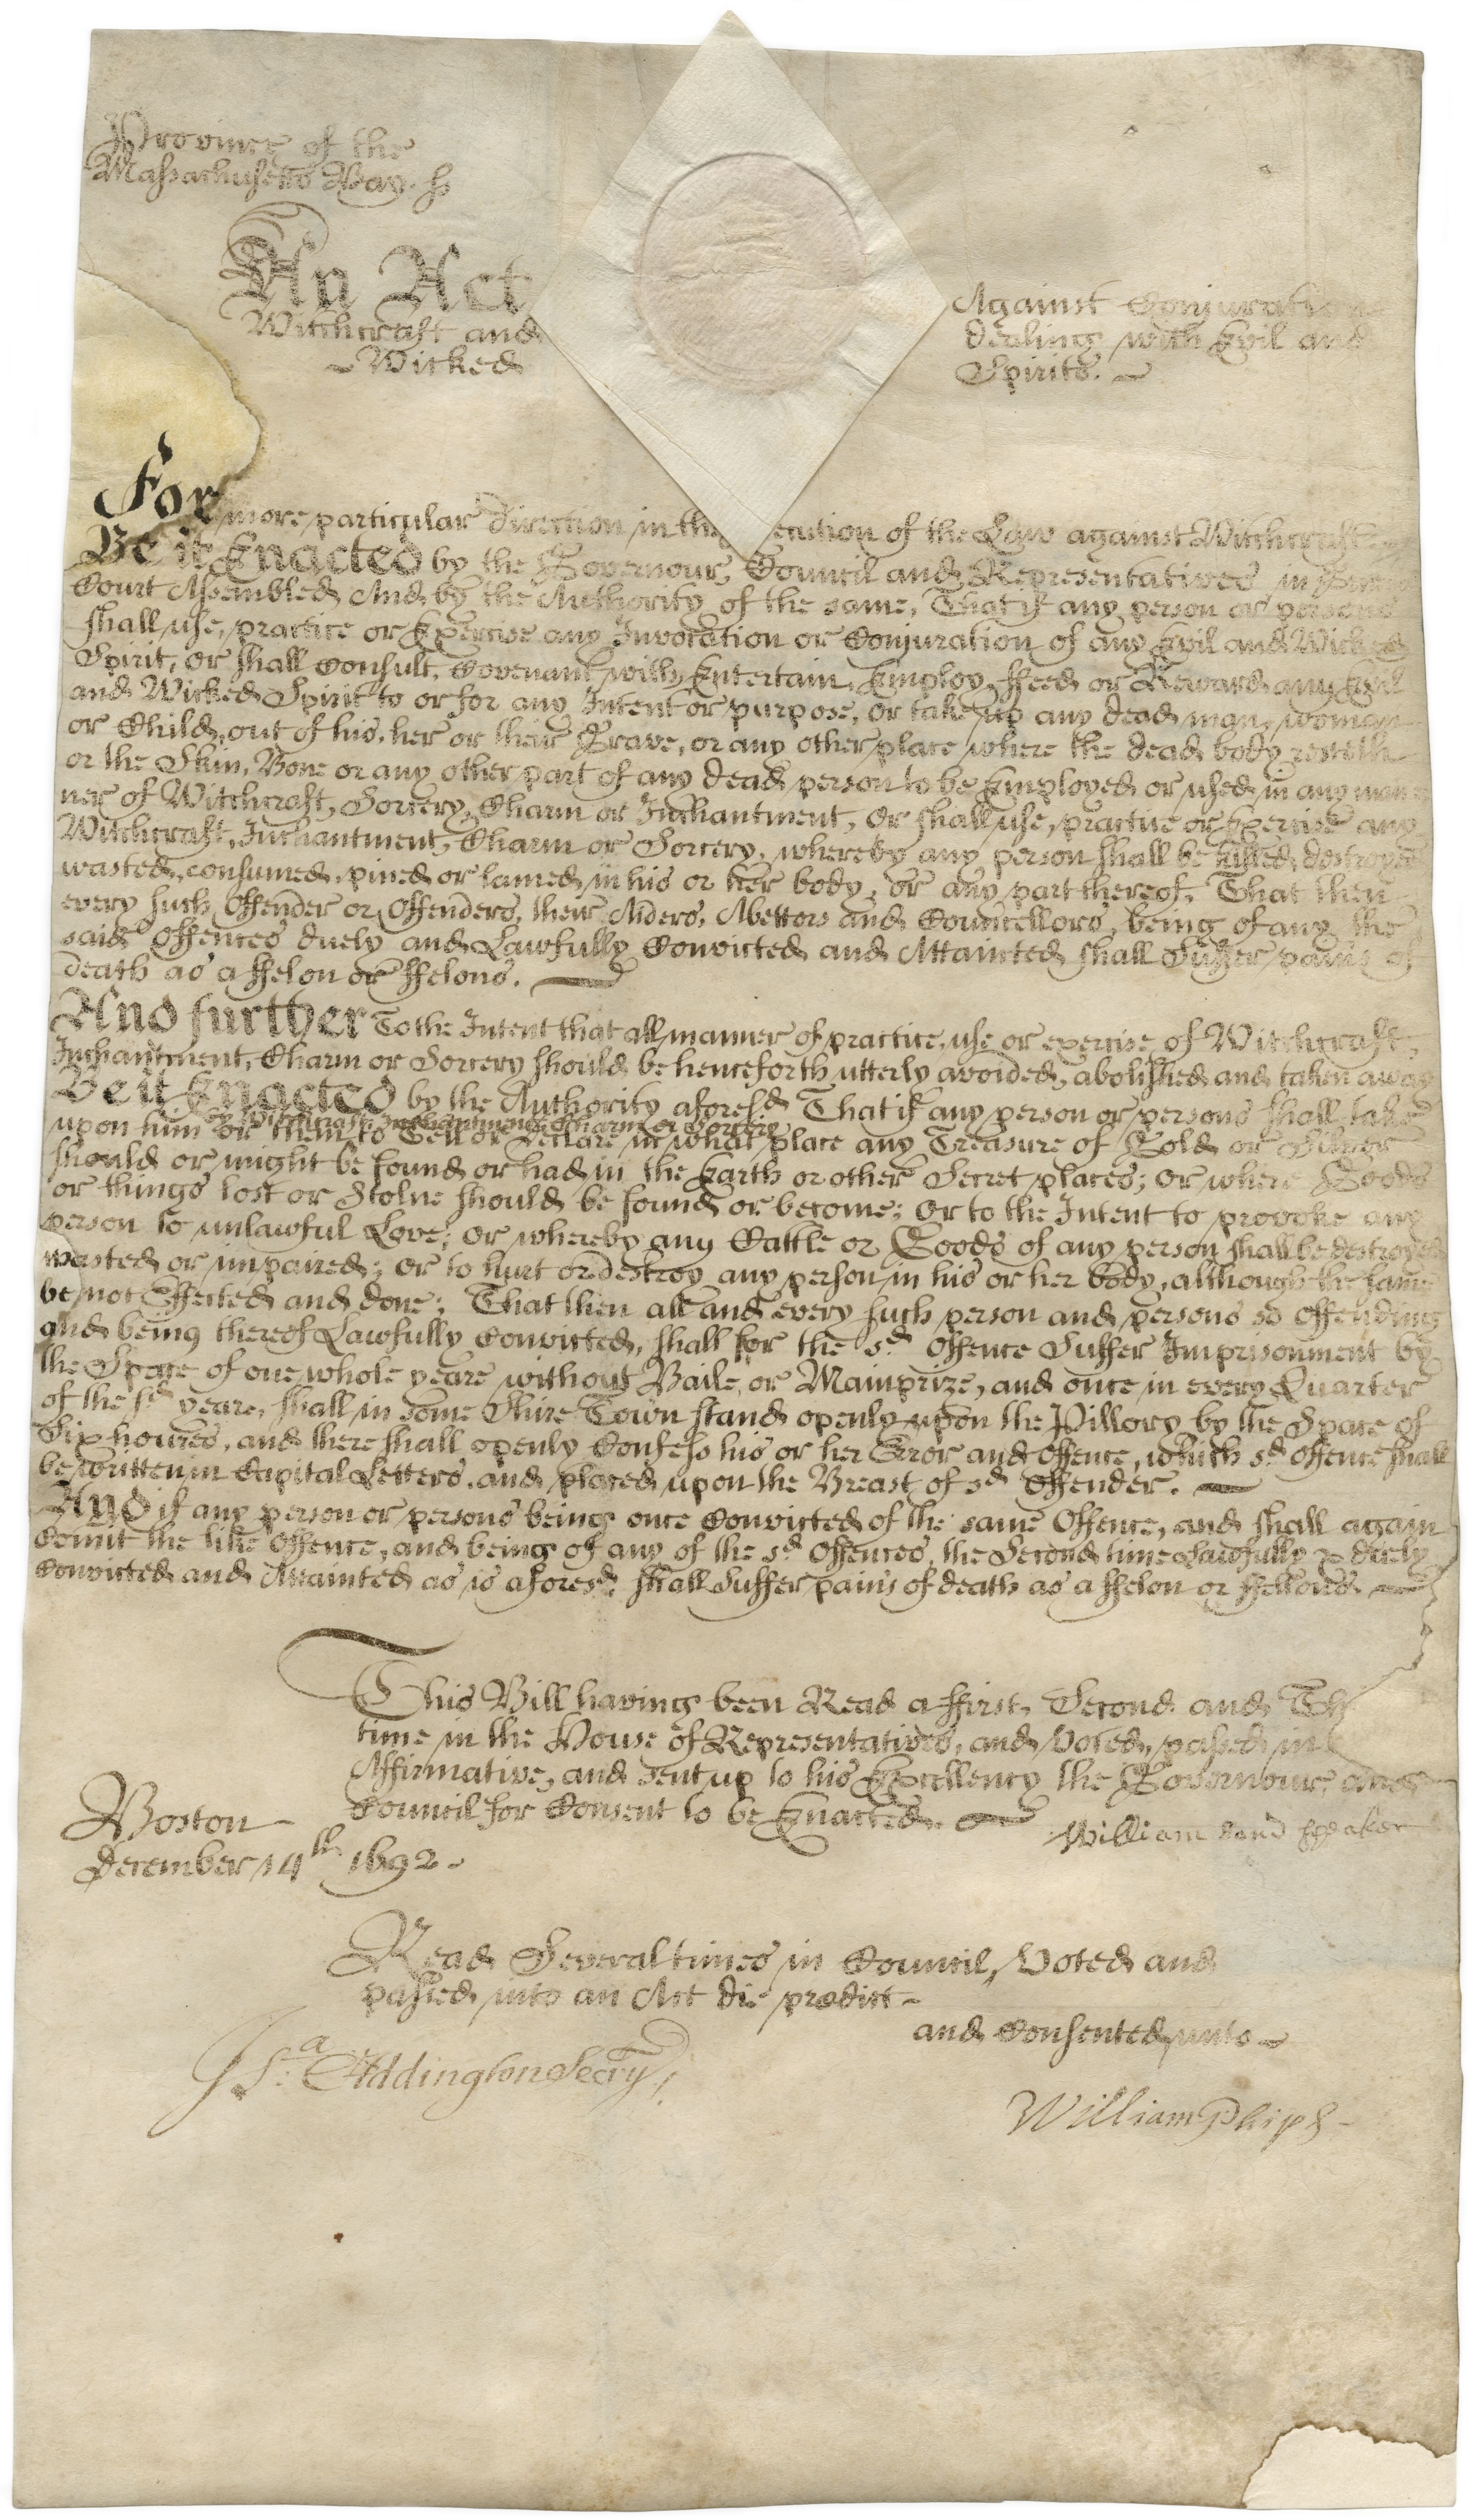 Province of the
Massachusetts Bay. ss
An Act Against Conjuration
Witchcraft and dealing with Evil and
Wicked Spirits.
For more particular direction in the ecution of the Law against Witchcraft
Be it Enacted by the Governour, Council and Representatives in
Court Assembled, And by the Authority of the same, That if any person or persons
shall use, practice or Exercise any Invocation or Conjuration of any Evil and Wicked
Spirit, Or shall Consult, Covenant with, Entertain, Employ, ffeed or Reward any Evil
and Wicked Spirit to or for any Intent or purpose, or take up any dead man, woman
or Child, out of his, her or their Grave, or any other place where the dead body resteth
or the Skin, Bone or any other part of any dead person to be Employed or used in any man
ner of Witchcraft, Sorcery, Charm or Inchantment, Or shall use, practice or Exercise any
Witchcraft, Inchantment, Charm or Sorcery, whereby any person shall be killed, destroyed
wasted, consumed, pined or lamed in his or her body, or any part thereof, That then
every such Offender or Offenders, their Aiders, Abettors and Councellors, being of any the
said Offences duely and Lawfully Convicted and Attainted, shall Suffer pains of
death as a ffelon or ffelons.
And further To the Intent that all manner of practice, use or exercise of Witchcraft,
Inchantment, Charm or Sorcery should be henceforth utterly avoided, abolished and taken away
Be it Enacted by the Authority aforesd. That if any person or persons shall take
by Witchcraft Inchantment Charm or Sorcery
upon him or them to Tell or Declare in what place any Treasure of Gold or Silver
should or might be found or had in the Earth or other Secret places; Or where Goods
or things lost or Stolne should be found or become; Or to the Intent to provoke any
person to unlawful Love; Or whereby any Cattle or Goods of any person shall be destroyed
wasted or impaired; Or to hurt or destroy any person in his or her body, although the same
be not Effected and done; That then all and every such person and persons so Offending
and being thereof Lawfully Convicted, shall for the sd. Offence Suffer Imprisonment by
the Space of one whole yeare without Baile or Mainprize, and once in every Quarter
of the sd. yeare, shall in some Shire Town stand openly upon the Pillory by the Space of
Six houres, and there shall openly Confess his or her Error and Offence, which sd. Offence shall
be written in Capital Letters, and placed upon the Breast of sd. Offender.
And if any person or persons being once Convicted of the same Offence, and shall again
Comit the like Offence, and being of any of the sd. Offences the Second time Lawfully & duely
Convicted and Attainted as is aforesd. shall Suffer pains of death as a ffelon or ffellons.
This Bill having been Read a ffirst, Second and Th
time in the House of Representatives, and Voted, passed in
Affirmative, and sent up to his Excellency the Governour and
Council for Consent to be Enacted.
William Bond Speaker
Boston
December 14th. 1692.
Read Several times in Council, Voted and
passed into an Act die prædict
and Consented unto
Isa. Addington Secry.
William Phips